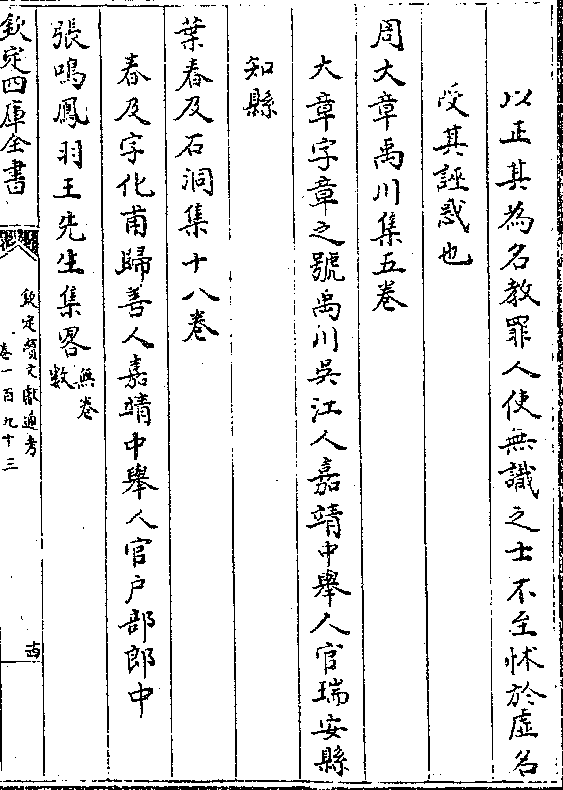 以正其為名教罪人使無識之士不至怵於虛名
受其誣惑也
周大章禹川集五卷
大章字章之號禹川吳江人嘉靖中舉人官瑞安縣
知縣
葉春及石洞集十八卷
春及字化甫歸善人嘉靖中舉人官戶部郎中
張鳴鳳羽王先生集畧無卷數
欽定四庫全書
欽定續文獻通考
卷一百九十三
十四